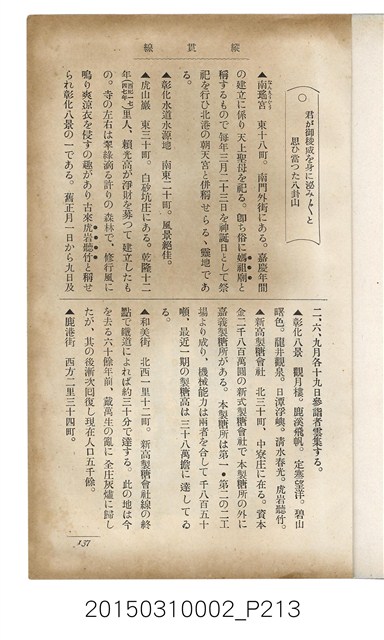 縱貫線
君が御稜威を身に泌み〲と
思ひ當つた八卦山
▲南瑤宮　東十八町。南門外街にある。嘉慶年間
の建立に係り天上聖母を祀る。卽ち俗に媽祖廟と
稱するもので每年三月二十三日を神誕日として祭
祀を行ひ北港の朝天宮と併稱せらるゝ靈地であ
る。
▲彰化水道水源地　南東二十町。風景絕佳。
▲虎山巖　東三十町。白砂坑庄にある。乾隆十二
年里人、賴光高が淨財を募つて建立したも
の。寺の左右は翠綠滴る許りの森林で、修行風に
鳴り爽凉衣を侵すの趣があり古來虎岩聽竹と稱せ
られ彰化八景の一である。舊正月一日から九日及
二、六、九月各十九日參詣者雲集する。
▲彰化八景　觀月樓。鹿溪飛帆。定寨望洋。碧山
曙色。龍井觀泉。日潭浮嶼。淸水春光。虎岩聽竹。
▲新高製糖會社　北三十町。中寮庄に在る。資本
金二千八百萬圓の新式製糖會社で本製糖所の外に
嘉義製糖所がある。本製糖所は第一・第二の二工
場より成り、機械能力は兩者を合して千八百五十
噸、最近一期の製糖高は三十八萬擔に達してゐ
る。
▲和美街　北西一里十二町。新高製糖會社線の終
點で鐵道によれば約三十分で達する。此の地は今
を去る六十餘年前、戴萬生の亂に全庄灰燼に歸し
たが、其の後漸次囘復し現在人口五千餘。
▲鹿港街　西方二里三十四町。
137
20150310002_P213